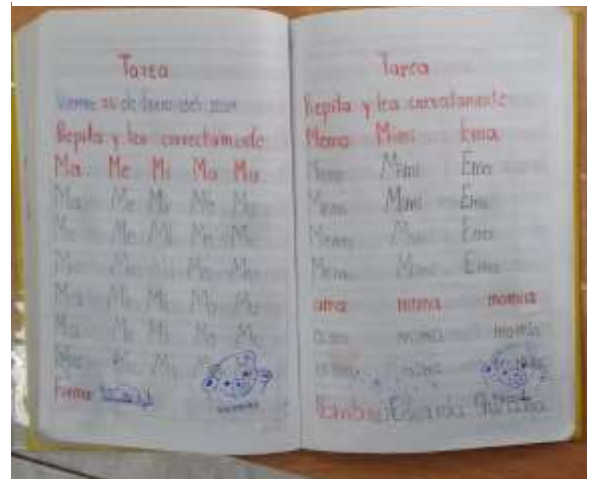 Tarea
Viernes 26 de
Repita y lea correctamente
Ma Me Mi Mo Mu
Ma Me Mi Mo Mu
Ma Me Mi Mo Mu
Ma Me Mi Mo Mu
Ma Me Mi Mo Mu
Ma Me Mi Mo Mu
Ma Me Mi
Firma:
Tarea
Repita y lea correctamente
Memo Mimi Ema
Memo Mimi Ema
Memo Mimi Ema
Memo Mimi Ema
Memo Mimi Ema
ama mima momia
ama mima momia
ama mima
Nombre: Eduardo